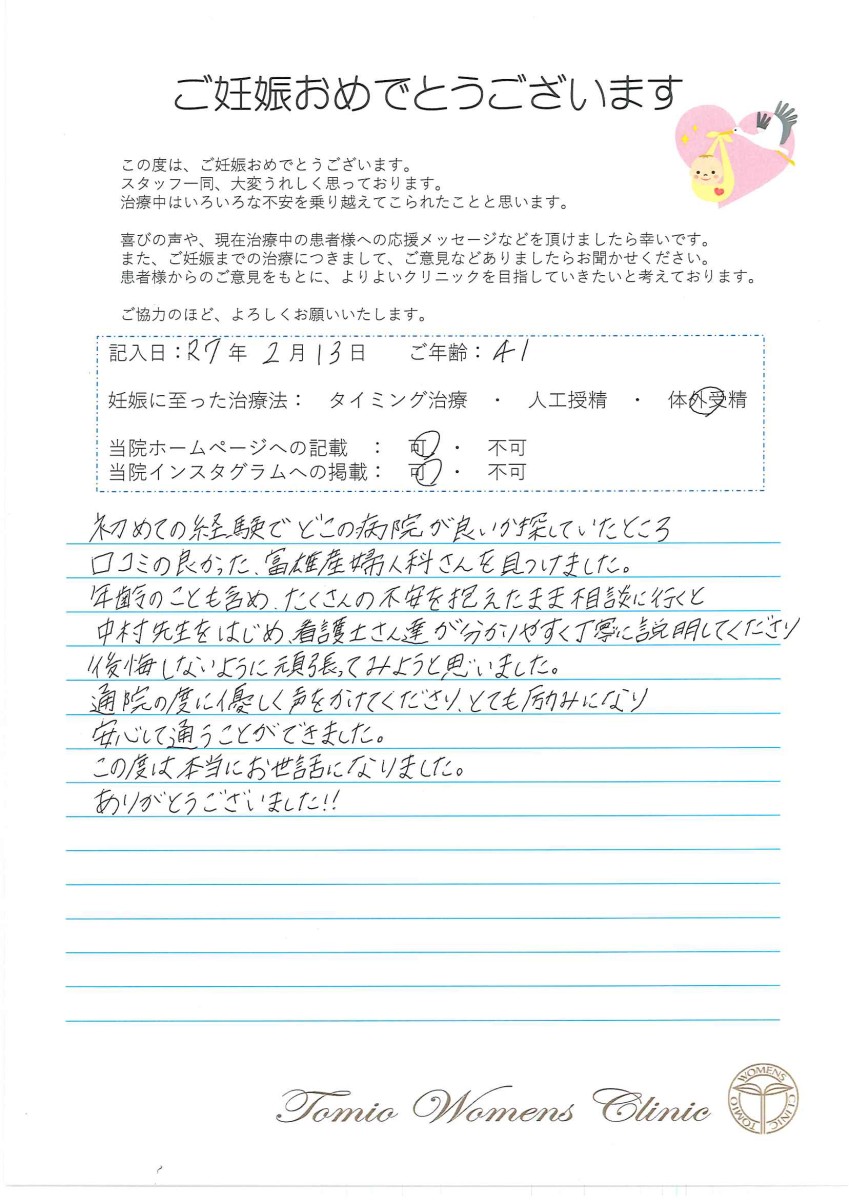 ご妊娠おめでとうございます
この度は、ご妊娠おめでとうございます。
スタッフ一同、大変うれしく思っております。
治療中はいろいろな不安を乗り越えてこられたことと思います。
喜びの声や、現在治療中の患者様への応援メッセージなどを頂けましたら幸いです。
また、ご妊娠までの治療につきまして、ご意見などありましたらお聞かせください。
患者様からのご意見をもとに、よりよいクリニックを目指していきたいと考えております。
ご協力のほど、よろしくお願いいたします。
記入日：R7年 2月13日 ご年齢：41
妊娠に至った治療法： タイミング治療 ・ 人工授精 ・ 体外受精
当院ホームページへの記載 ： 可 ・ 不可
当院インスタグラムへの掲載： 可 ・ 不可
初めての経験でどこの病院が良いか探していたところ
口コミの良かった、富雄産婦人科さんを見つけました。
年齢のことも含め、たくさんの不安を抱えたまま相談に行くと
中村先生をはじめ、看護士さん達が分かりやすく丁寧に説明してくださり
後悔しないように頑張ってみようと思いました。
通院の度に優しく声をかけてくださり、とても励みになり
安心して通うことができました。
この度は本当にお世話になりました。
ありがとうございました!!
Tomio Womens Clinic
TOMIO WOMENS CLINIC